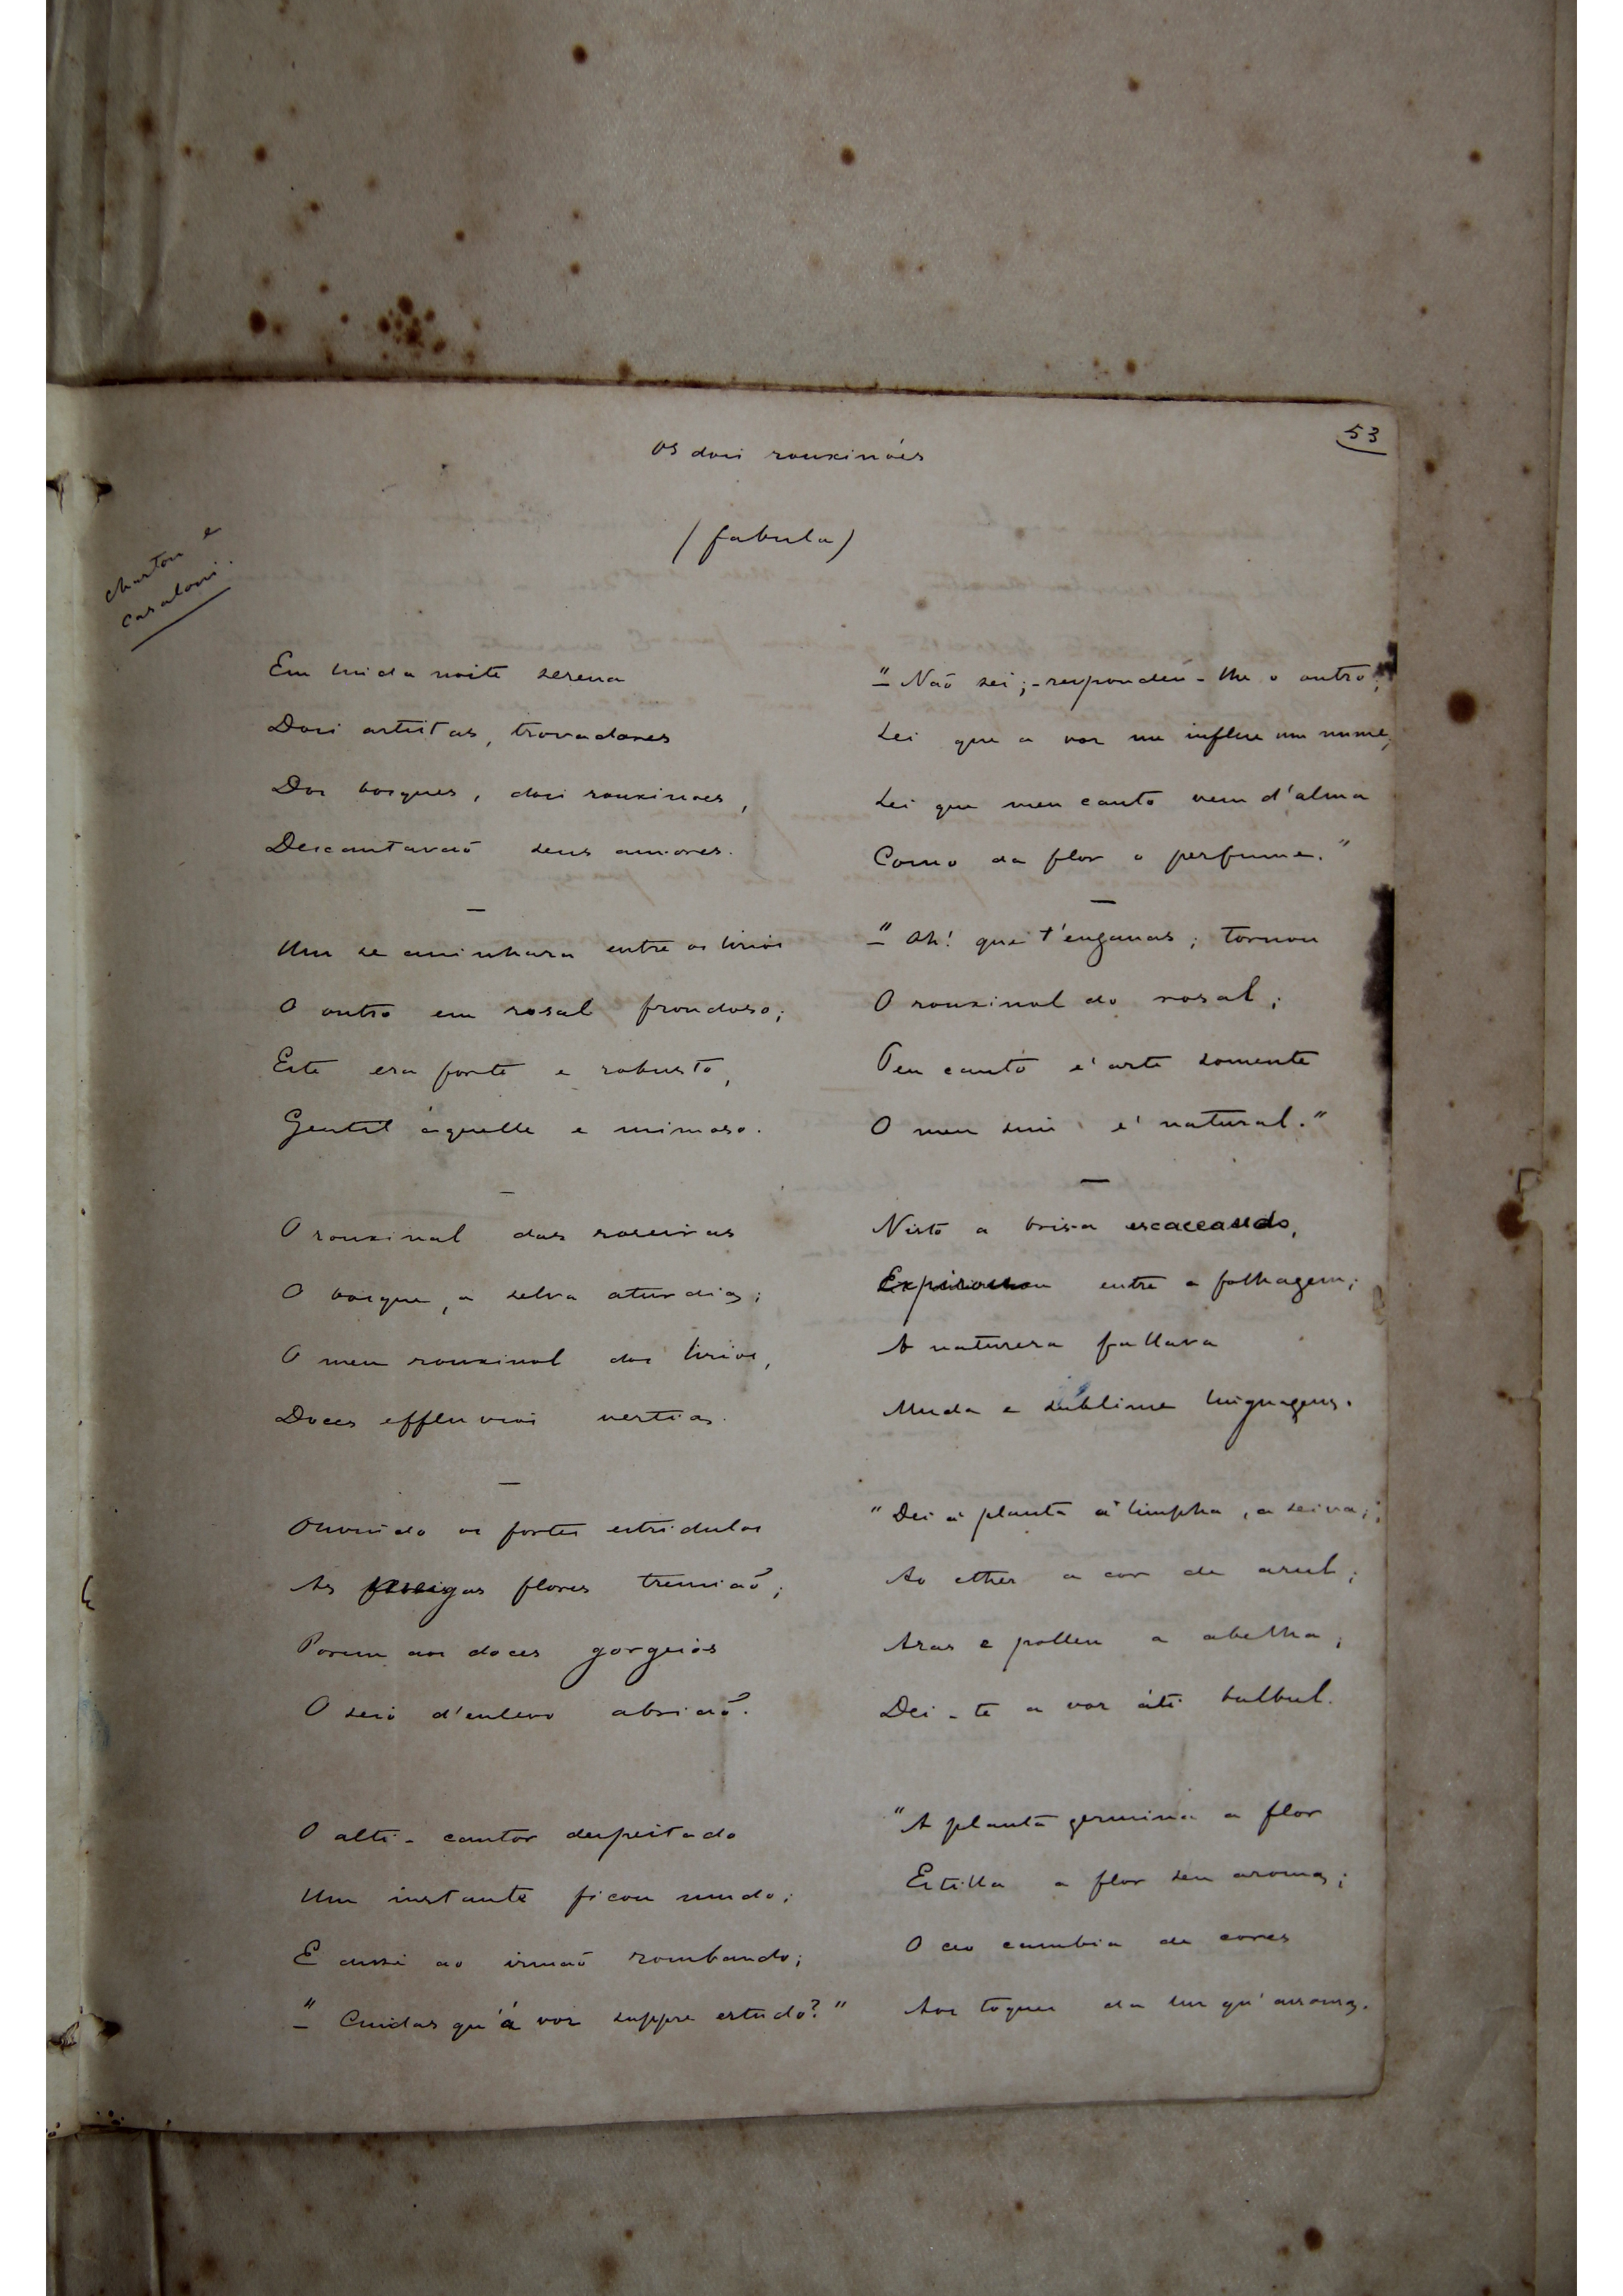 53
Os dois rouxinóes
(fabula)
Charton e
Casaloni.
Em linda noite serena
Dois artistas, trovadores
Dos bosques, dois rouxinoes,
Descantavaõ seus amores.
Um se aninhara entre os lirios
O outro em rosal frondoso;
Este era forte e robusto,
Gentil áquelle e mimoso.
O rouxinol das roseiras
O bosque, a selva aturdia;
O meu rouxinol dos lirios,
Doces effluvios vertia.
Ouvindo os fortes estridulos
As flores tremiaõ;
Porem aos doces gorgeios
O seio d'enlevo abriaõ.
O alti-cantor despeitado
Um instante ficou mudo;
E disse ao irmaõ zombando;
"– Cuidas qu'á voz suppre estudo?"
"– Naõ sei; - respondeu-lhe o outro;
Sei que a voz me influe um nume,
Sei que meu canto vem d'alma
Como da flor o perfume."
"– Ah! que t'enganas; tornou
O rouxinol do rosal;
Teu canto é arte somente
O meu sim é natural."
Nisto a brisa escaceando,
Expirou entre a folhagem;
A natureza fallava
Muda e sublime linguagem.
"Dei á planta a limpha, a seiva;
Ao ether a cor de azul;
Azas e pollen a abelha;
Dei-te a voz áti bulbul.
"A planta germina a flor
Estilla a flor seu aroma;
O ceo cambia de cores
Aos toques da luz qu'assoma.